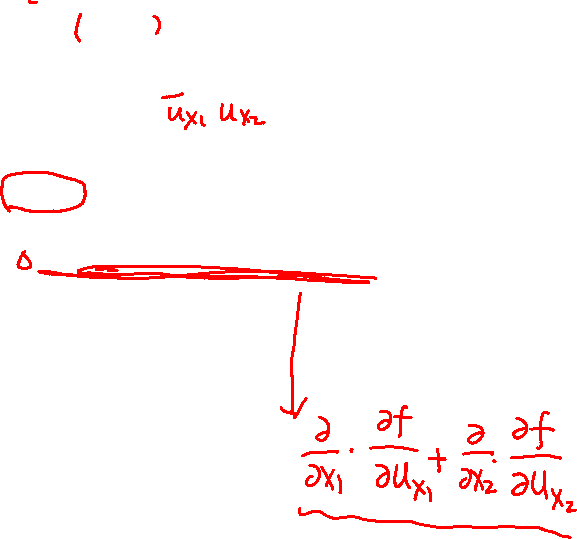 ( )
u̅x₁ ux₂
∂/∂x₁ · ∂f/∂ux₁ + ∂/∂x₂ · ∂f/∂ux₂